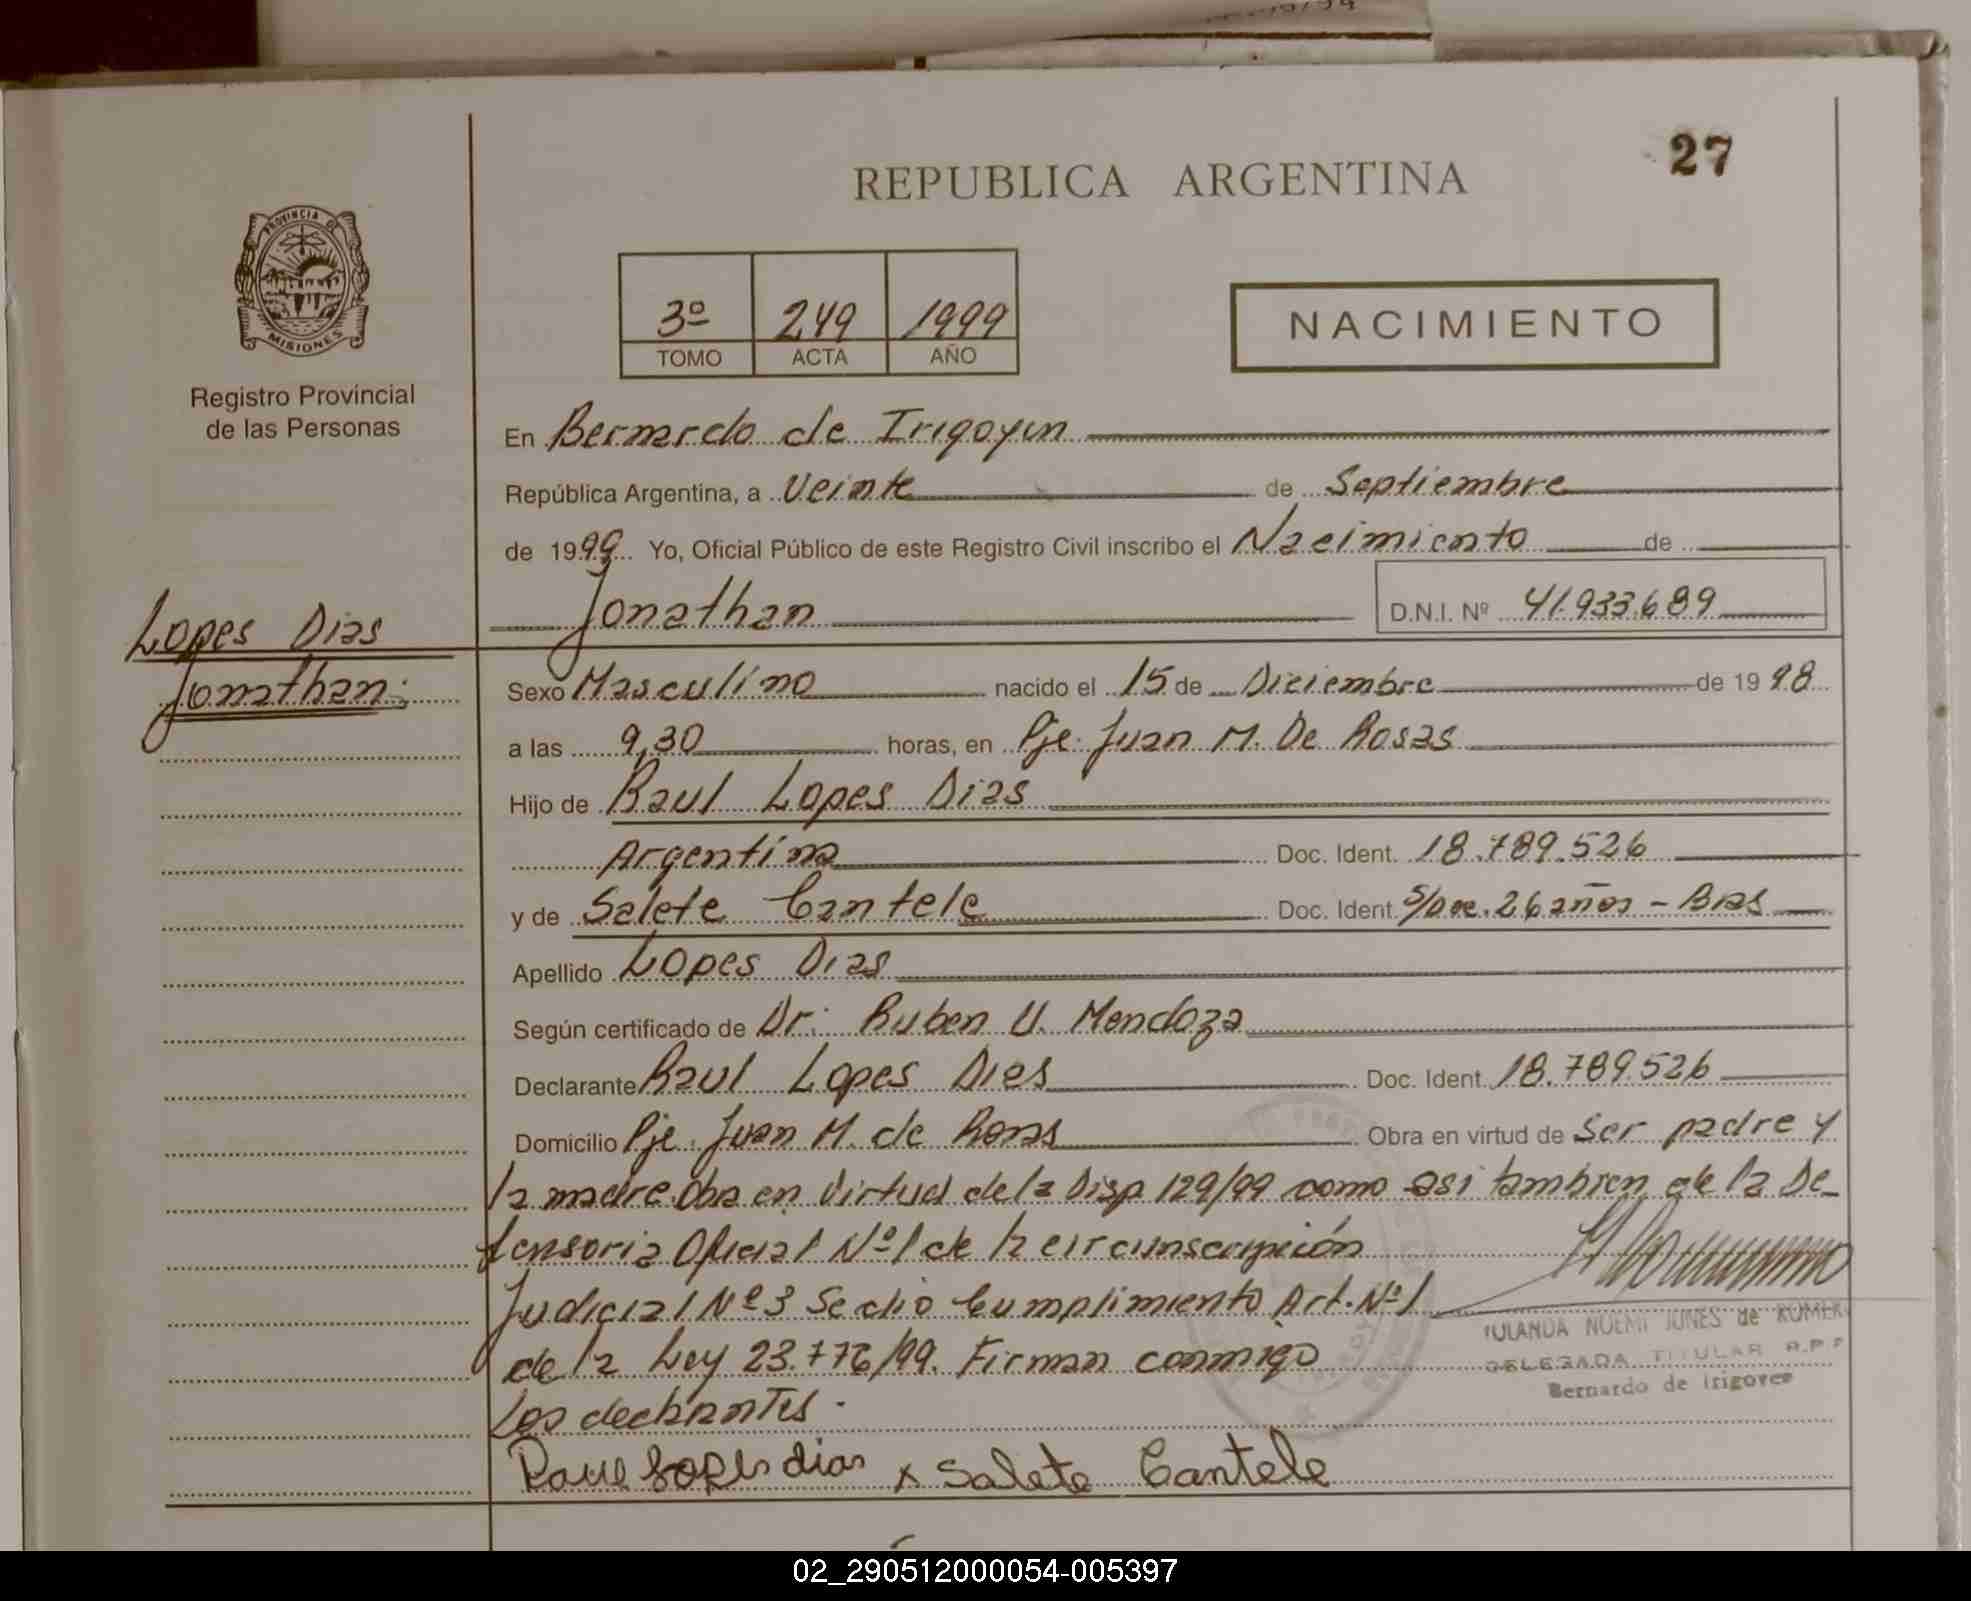 27
REPUBLICA ARGENTINA
PROVINCIA DE
MISIONES
Registro Provincial
de las Personas
3º 249 1999
TOMO ACTA AÑO
NACIMIENTO
En Bernardo de Irigoyen
República Argentina, a Veinte de Septiembre
de 1999 Yo, Oficial Público de este Registro Civil inscribo el Nacimiento de
Jonathan D.N.I. Nº 41.933.689
Lopes Dias
Jonathan:
Sexo Masculino nacido el 15 de Diciembre de 1998
a las 9,30 horas, en Pje. Juan M. De Rosas
Hijo de Raul Lopes Dias
Argentina Doc. Ident. 18.789.526
y de Salete Cantele Doc. Ident. S/Doc. 26 años - Bras
Apellido Lopes Dias
Según certificado de Dr: Ruben U. Mendoza
Declarante Raul Lopes Dies Doc. Ident. 18.789.526
Domicilio Pje. Juan M. de Rosas Obra en virtud de Ser padre y
la madre. Obra en Virtud de la Disp 129/99 como asi tambien de la De_
fensoria Oficial Nº 1 de la circunscripción
Judicial Nº 3 Se dio Cumplimiento Art. Nº 1
de la Ley 23.776/99. Firman conmigo
Los declarantes.
YOLANDA NOEMI JONES de ROMERO
DELEGADA TITULAR R.P.P
Bernardo de Irigoyen
Raul Lopes dias x Salete Cantele
02_290512000054-005397